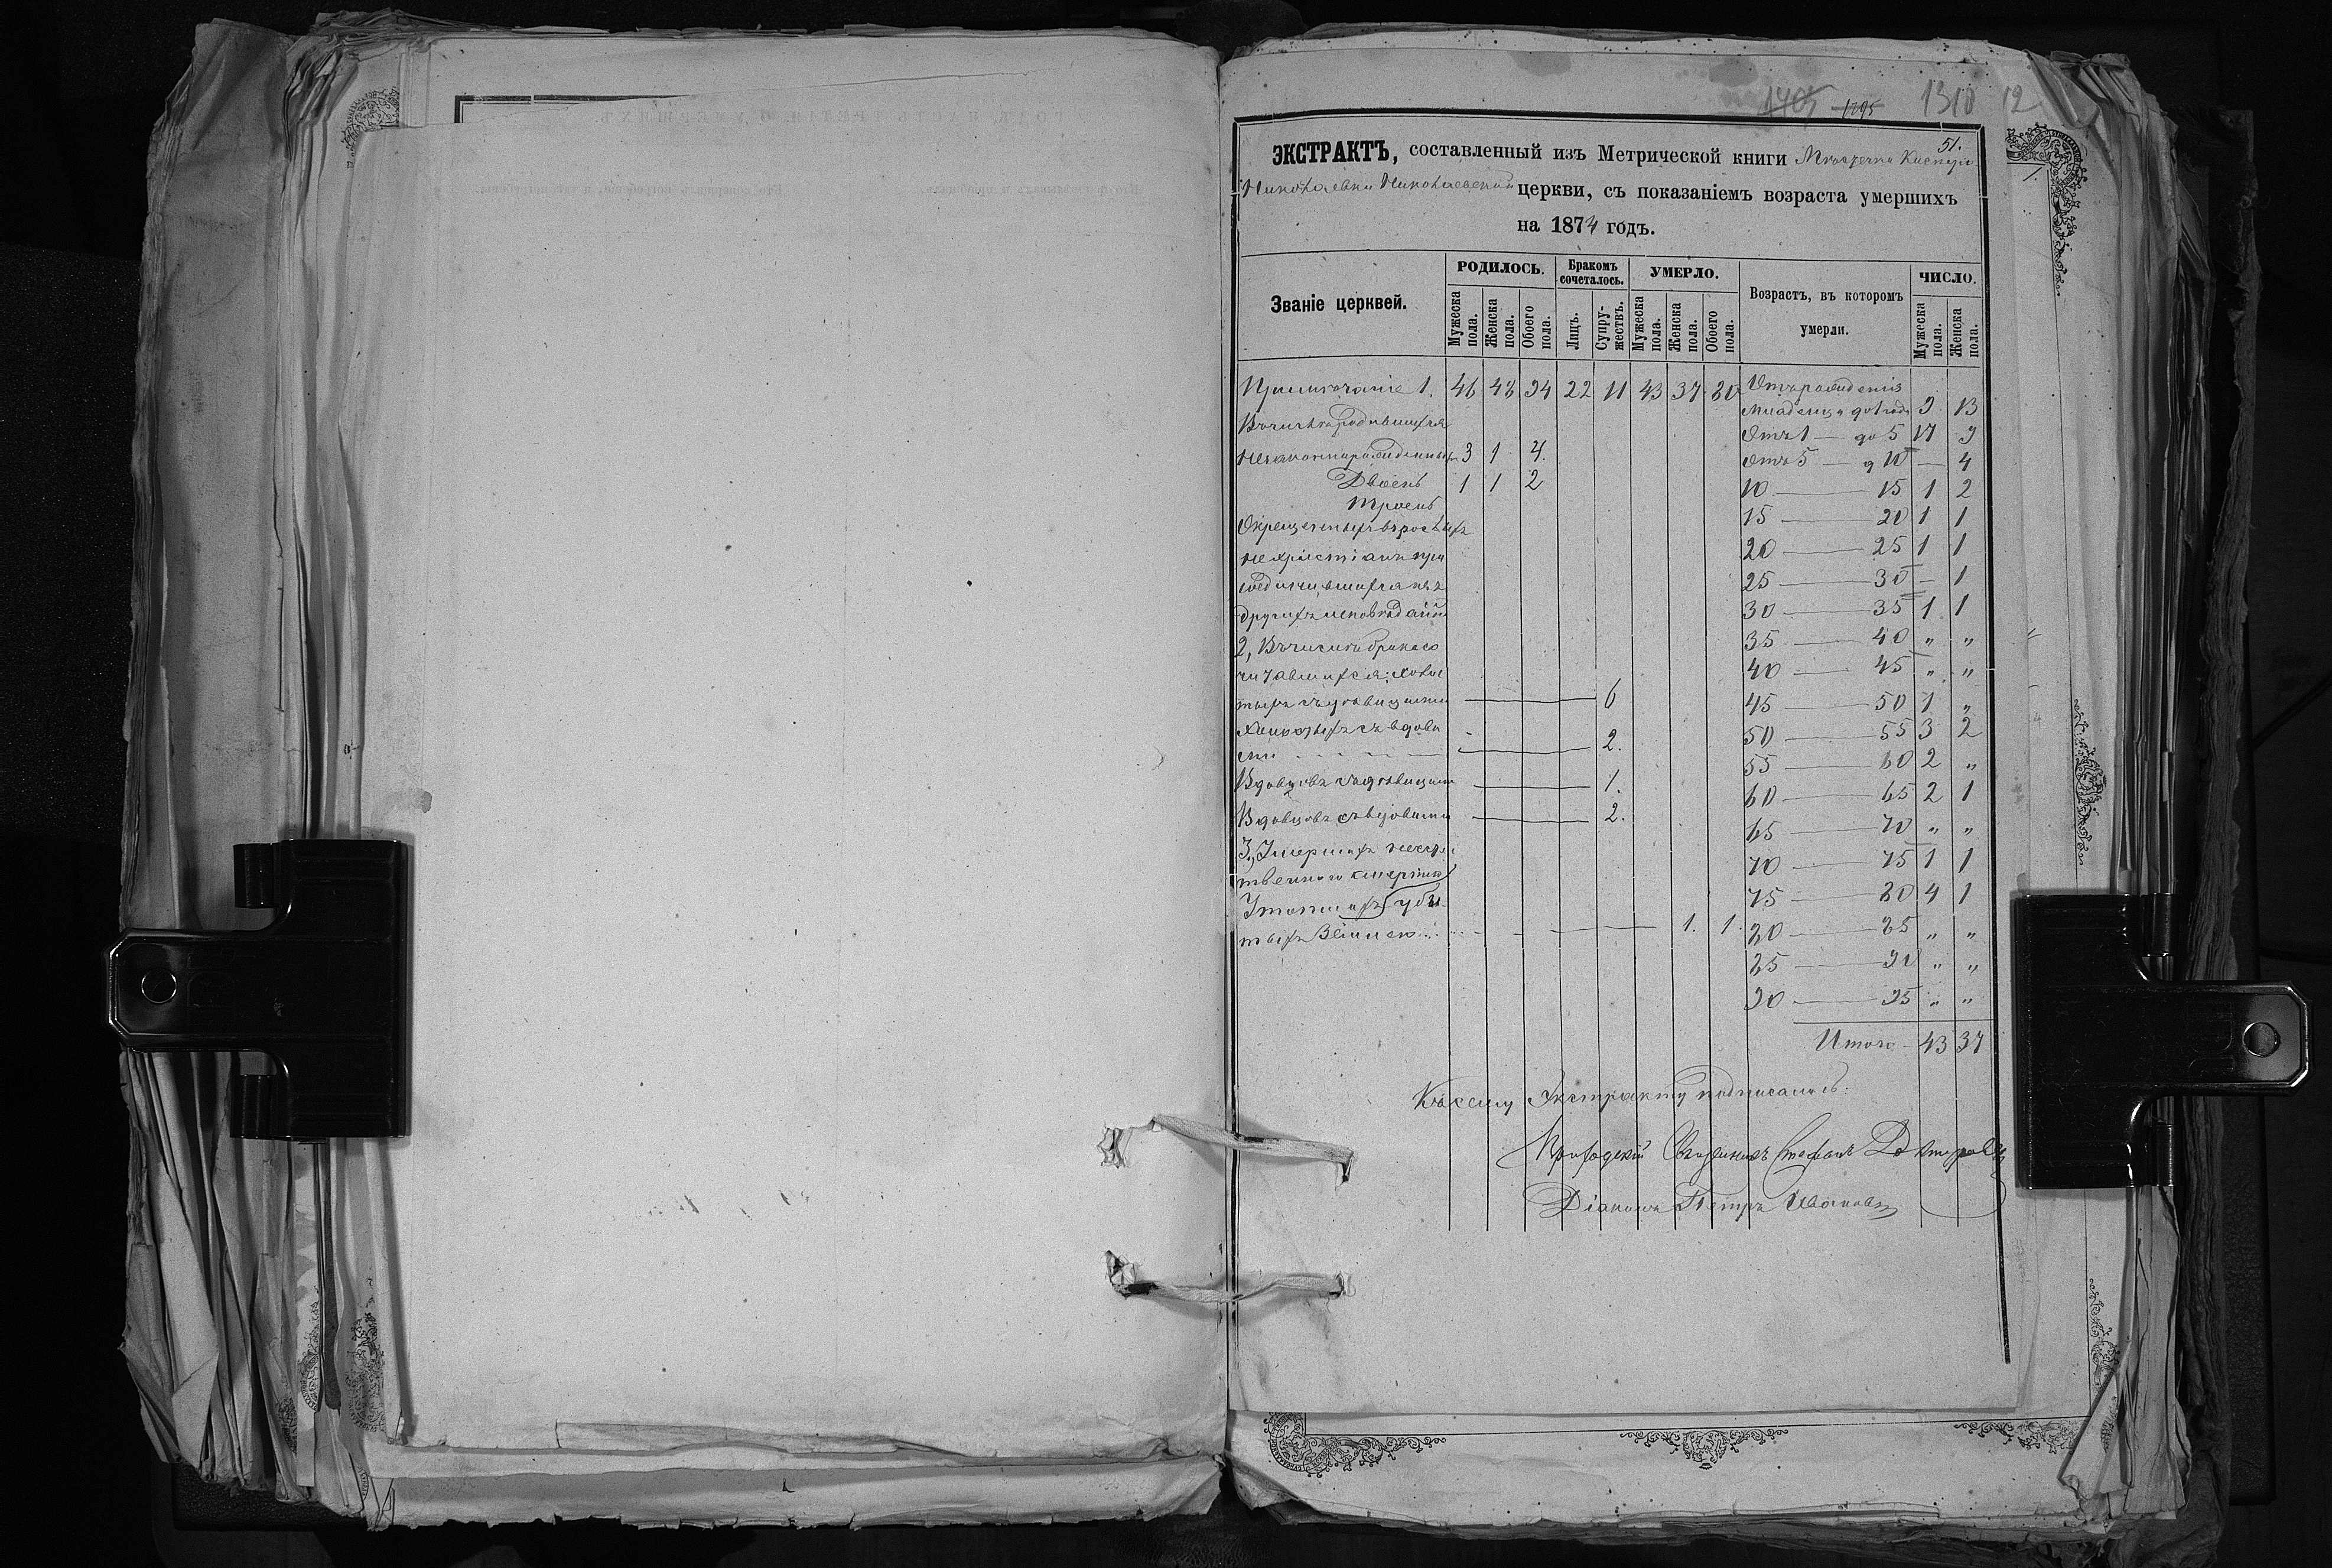 1405 1295 1310 12
51.
ЭКСТРАКТЪ, составленный изъ Метрической книги Мѣстечка
Николаевки Николаевской церкви, съ показаніемъ возраста умершихъ
на 1874 годъ.
Званіе церквей. РОДИЛОСЬ. Бракомъ сочеталось. УМЕРЛО. Возрастъ, въ которомъ умерли. ЧИСЛО.
Мужеска пола. Женска пола. Обоего пола. Лицъ. Супружествъ. Мужеска пола. Женска пола. Обоего пола. Мужеска пола. Женска пола.
Примѣчаніе 1. 46 48 94 22 11 43 37 80 Отъ рожденія
младенца до 1 года 9 13
Въ числѣ родившихся
Отъ 1 — до 5 17 9
незаконнорожденныхъ 3 1 4.
Отъ 5 — д 10 — 4
Двоень 1 1 2
10 — 15 1 2
Троень
15 — 20 1 1
Окрещенныхъ взрослыхъ
нехристіанъ при
20 — 25 1 1
соединившихся изъ
25 — 30 — 1
другихъ исповѣданій
30 — 35 1 1
2, Въ числѣ бракосо
35 — 40 " "
читавшихся: холос
40 — 45 " "
тыхъ съ дѣвицами — 6
45 — 50 1 "
Холостыхъ съ вдова
ми — 2.
50 — 55 3 2
55 — 60 2 "
Вдовцовъ съ дѣвицами — 1.
60 — 65 2 1
Вдовцовъ съ вдовами — 2.
65 — 70 " "
3, Умершихъ неест
70 — 75 1 1
твенною смертію
75 — 80 4 1
Утопшихъ
тыхъ — 1. 1.
80 — 85 " "
85 — 90 " "
90 — 95 " "
Итого — 43 37
Къ сему Экстракту подписались:
Приходскій Священникъ Стефанъ
Діаконъ Петръ Ивановъ